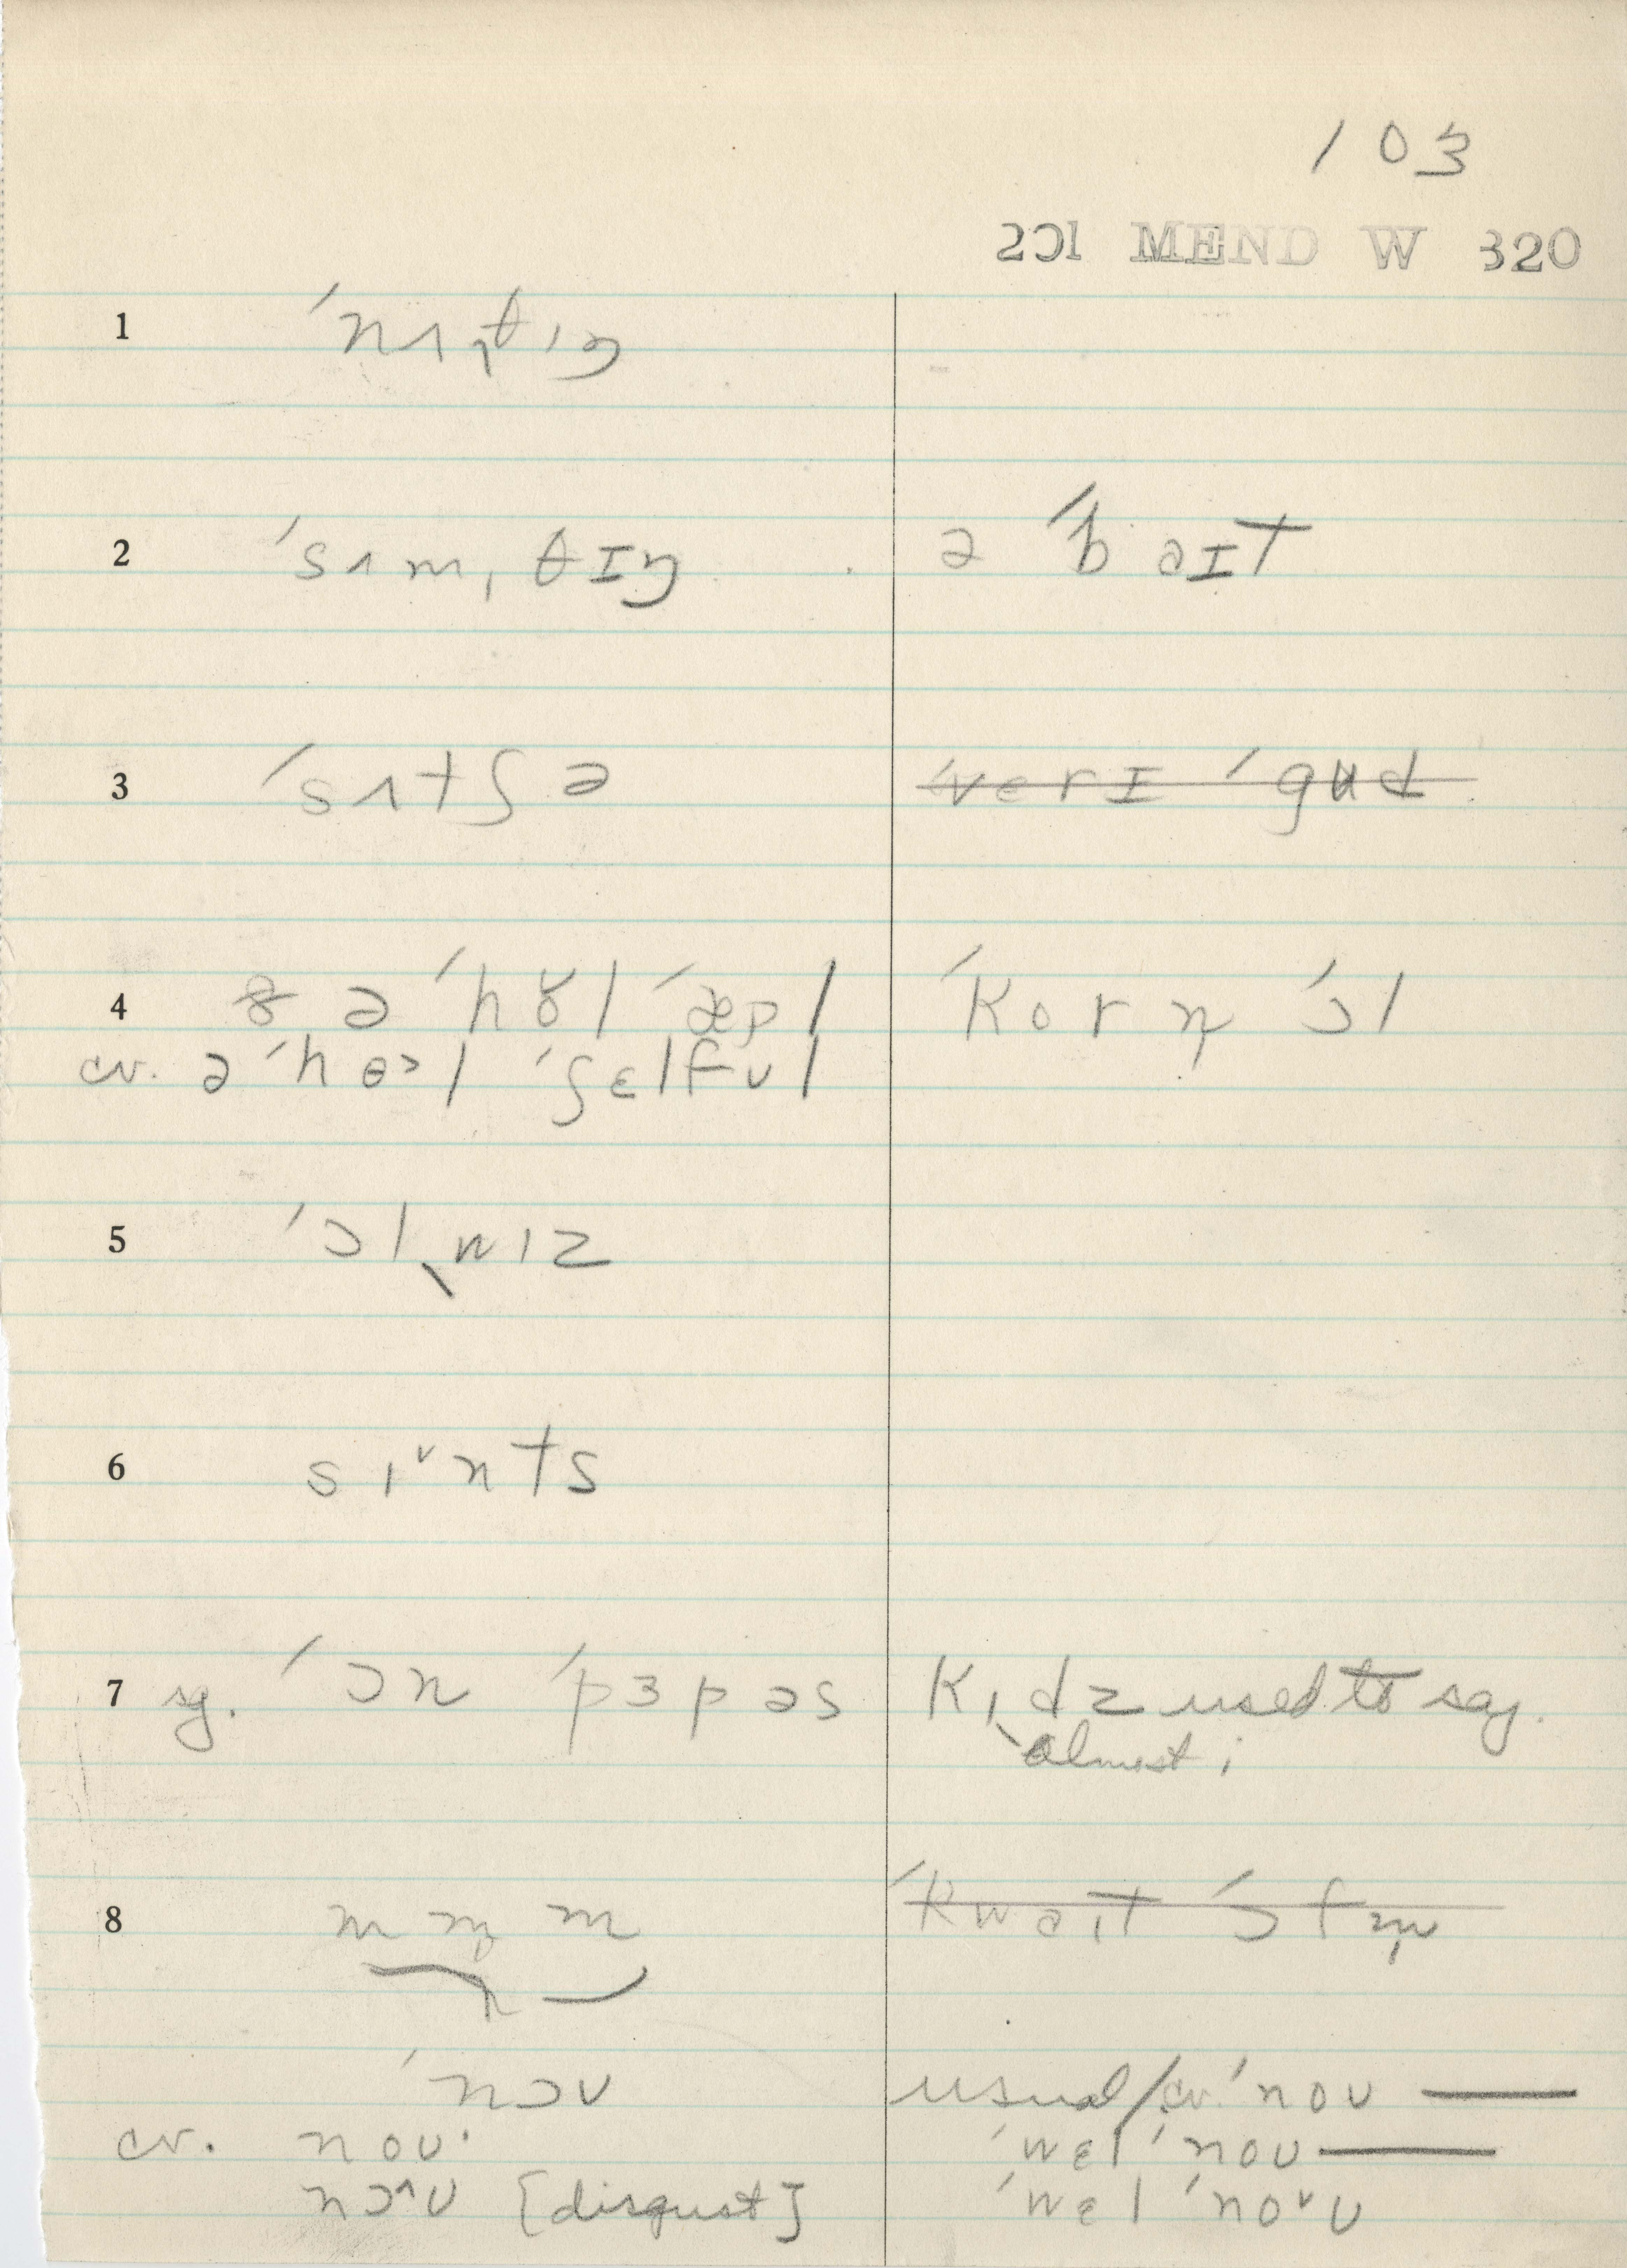 103
201 MEND W 320
1 ˈnʌˌt̪ɪŋ
2 ˈsʌmˌθɪŋ ə ˈbəɪt
3 ˈsʌtʃ ə ˈverɪ ˈgud
4 ə ˈhɤl ˈæpl ˈkorn ˈɔl
cv. ə ˈhɵɔl ˈʃɛlfʊl
5 ˈɔlˌwɪz
6 sɪˇnts
7 sg. ˈɔn ˈpɜpəs kɪdz used to say.
almost i
8 m m̩ m ˈkwəɪt ˈɔfn̩
ˈnɔʊ usual/cv. ˈnoʊ —
cv. noʊ· ˈwɛl ˈnoʊ —
nɔ^ʊ [disgust] ˈwɛl ˈnoˇʊ